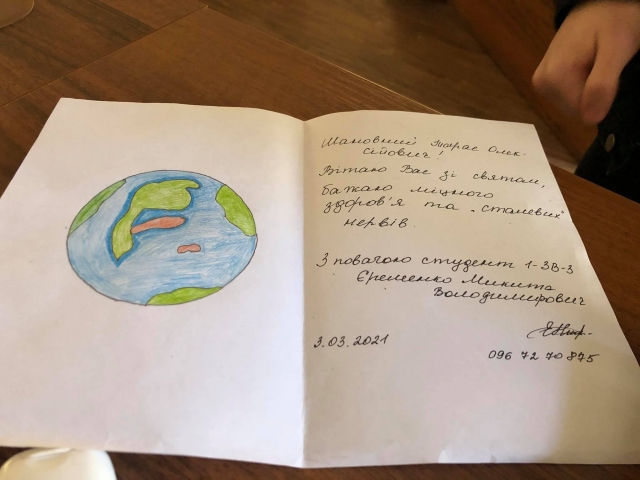 Шановний Тарас Олек-
сійович!
Вітаю Вас зі святом,
бажаю міцного
здоров'я та „сталевих"
нервів.
З повагою студент 1-ЗВ-3
Єременко Микита
Володимирович
3.03.2021
096 72 70 875